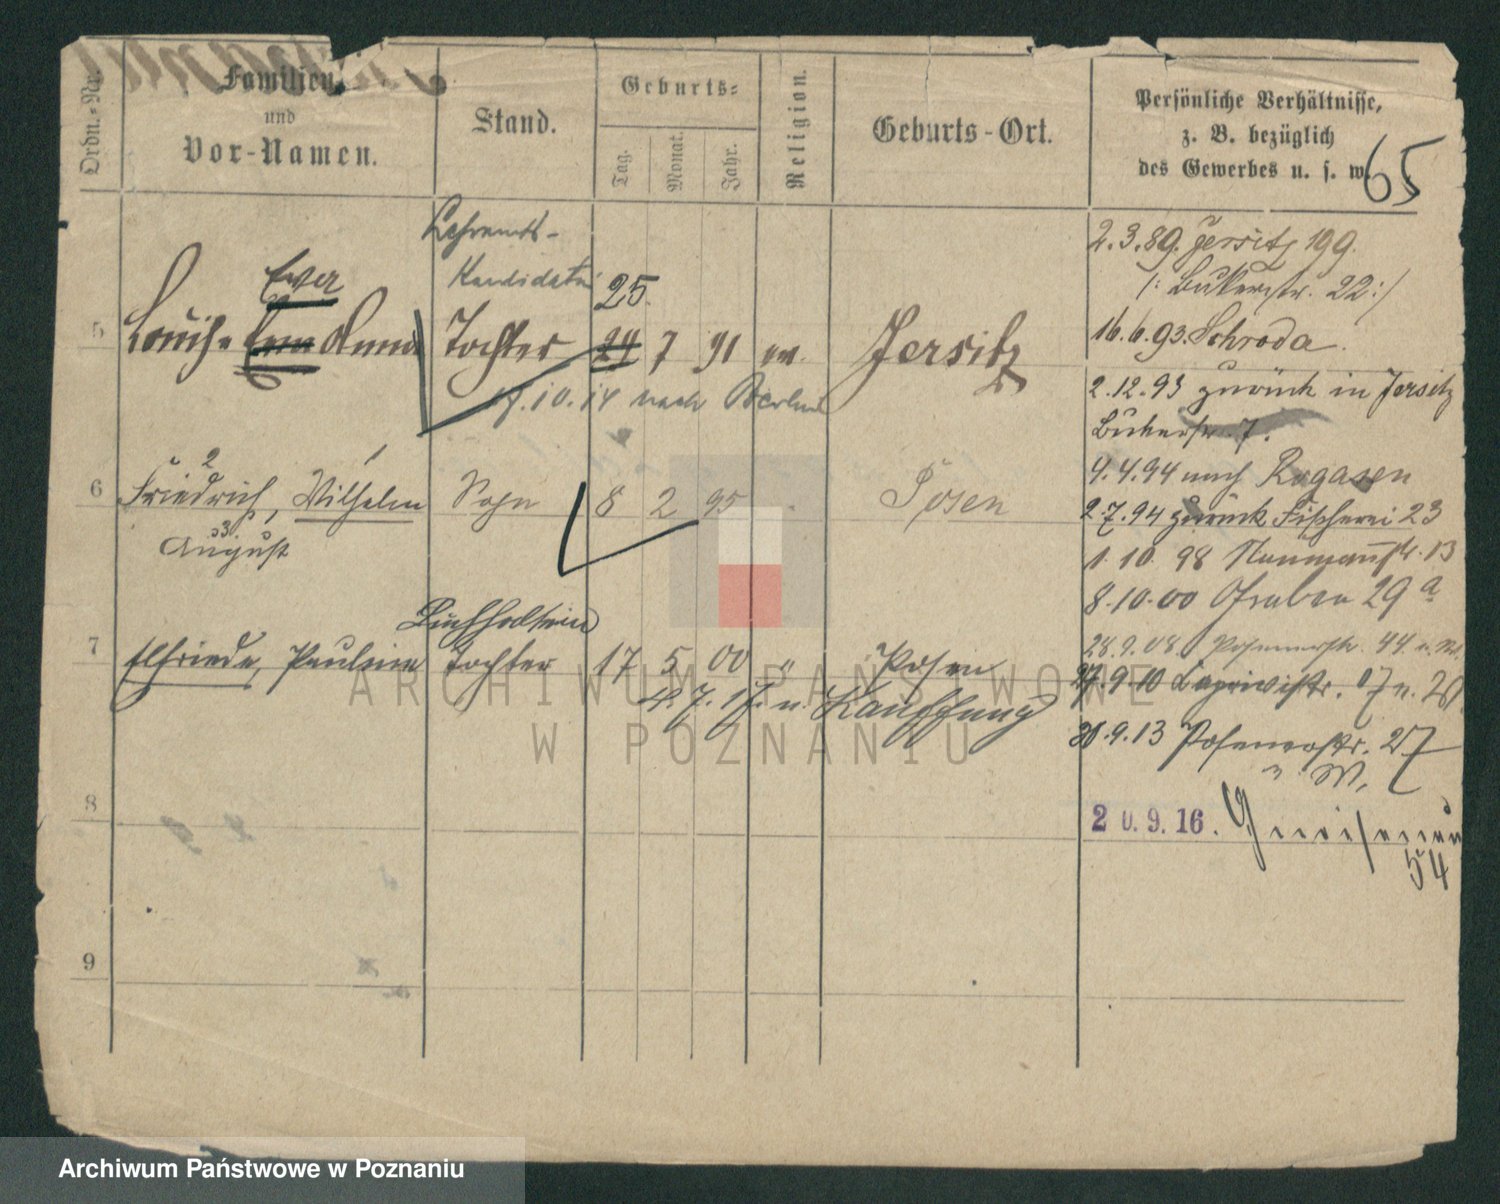 Ordn.-Nr.
Familien-
und
Vor-Namen.
Stand.
Geburts-
Tag.
Monat.
Jahr.
Religion.
Geburts-Ort.
Persönliche Verhältnisse,
z. B. bezüglich
des Gewerbes u. s. w.
65
Lehramts-
Kandidatin
5 Louise Eva Anna Tochter 25. 24 7 91 ev. Jersitz
17.10.14 nach Berlin
6 Friedrich, Wilhelm Sohn 8 2 95 Posen
2 1
3
August
Buchhalterin
7 Elfriede, Pauline Tochter 17 5 00 " Posen
8
9
2.3.89. Jersitz 199.
/: Bukerstr. 22:/
16.6.93. Schroda.
2.12.93 zurück in Jersitz
Bukerstr. 7.
4.4.94 nach Rogasen
2.7.94 zurück Fischerei 23
1.10.98 Naumannstr. 13
8.10.00 Graben 29a
28.9.08. Posenerstr. 44
27.9.10 Caprivistr.
30.9.13 Posenerstr. 27
20.9.16. Gneisenau
54
ARCHIWUM PAŃSTWOWE
W POZNANIU
Archiwum Państwowe w Poznaniu